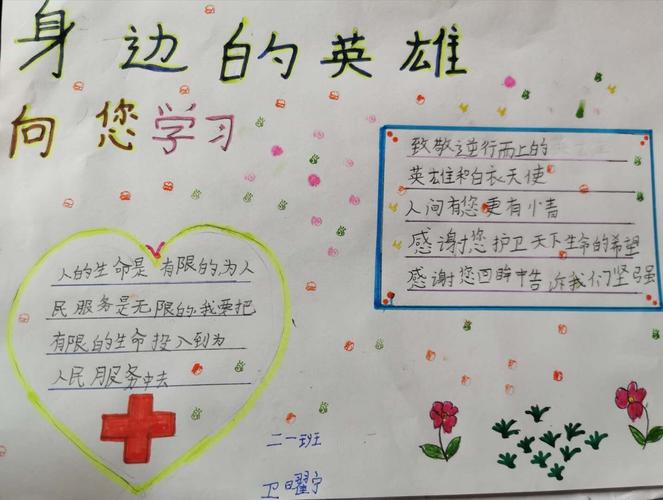 身边的英雄
向您学习
致敬逆行而上的
英雄和白衣天使
人间有您更有小青
感谢您护卫天下生命的希望
感谢您回眸中告诉我们坚强
人的生命是有限的,为人
民服务是无限的,我要把
有限的生命投入到为
人民服务中去
二一班
卫曜宁